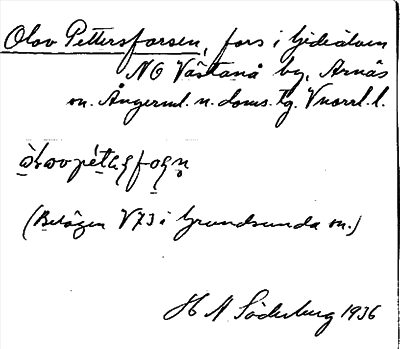 Olov Pettersforsen, fors i Gideälven
NO Västanå by, Arnäs
sn. Ångerml. n. doms. tg. Vnorrl. l.
(Belägen V73 i Grundsunda sn.)
H N Söderberg 1936